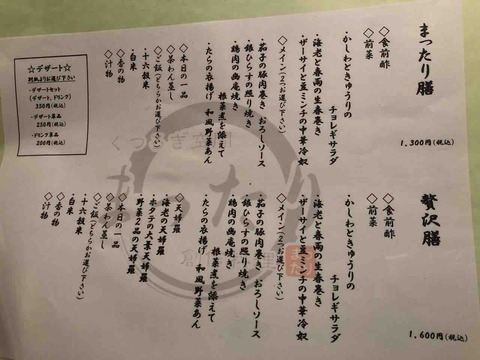 まったり膳
1,300円(税込)
◇食前酢
◇前菜
・かしわときゅうりの
チョレギサラダ
・海老と春雨の生春巻き
・ザーサイと豆ミンチの中華冷奴
◇メイン(2つお選び下さい)
・茄子の豚肉巻き おろしソース
・銀ひらすの照り焼き
・鶏肉の幽庵焼き
根菜煮を添えて
・たらの衣揚げ 和風野菜あん
◇本日の一品
◇茶わん蒸し
◇ご飯(どちらかお選び下さい)
・十六穀米
・白米
◇香の物
◇汁物
☆デザート☆
別紙よりお選び下さい
・デザートセット
(デザート、ドリンク)
350円(税込)
・デザート単品
250円(税込)
・ドリンク単品
200円(税込)
贅沢膳
1,600円(税込)
◇食前酢
◇前菜
・かしわときゅうりの
チョレギサラダ
・海老と春雨の生春巻き
・ザーサイと豆ミンチの中華冷奴
◇メイン(2つお選び下さい)
・茄子の豚肉巻き おろしソース
・銀ひらすの照り焼き
・鶏肉の幽庵焼き
根菜煮を添えて
・たらの衣揚げ 和風野菜あん
◇天婦羅
海老の天婦羅
ホタテの大葉天婦羅
野菜2品の天婦羅
◇本日の一品
◇茶わん蒸し
◇ご飯(どちらかお選び下さい)
・十六穀米
・白米
◇香の物
◇汁物
まったり